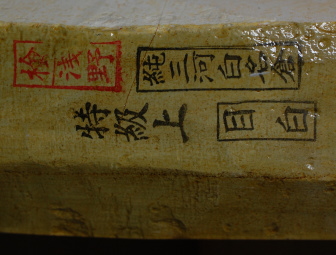 検浅野
純三河白名倉
特級上
目白